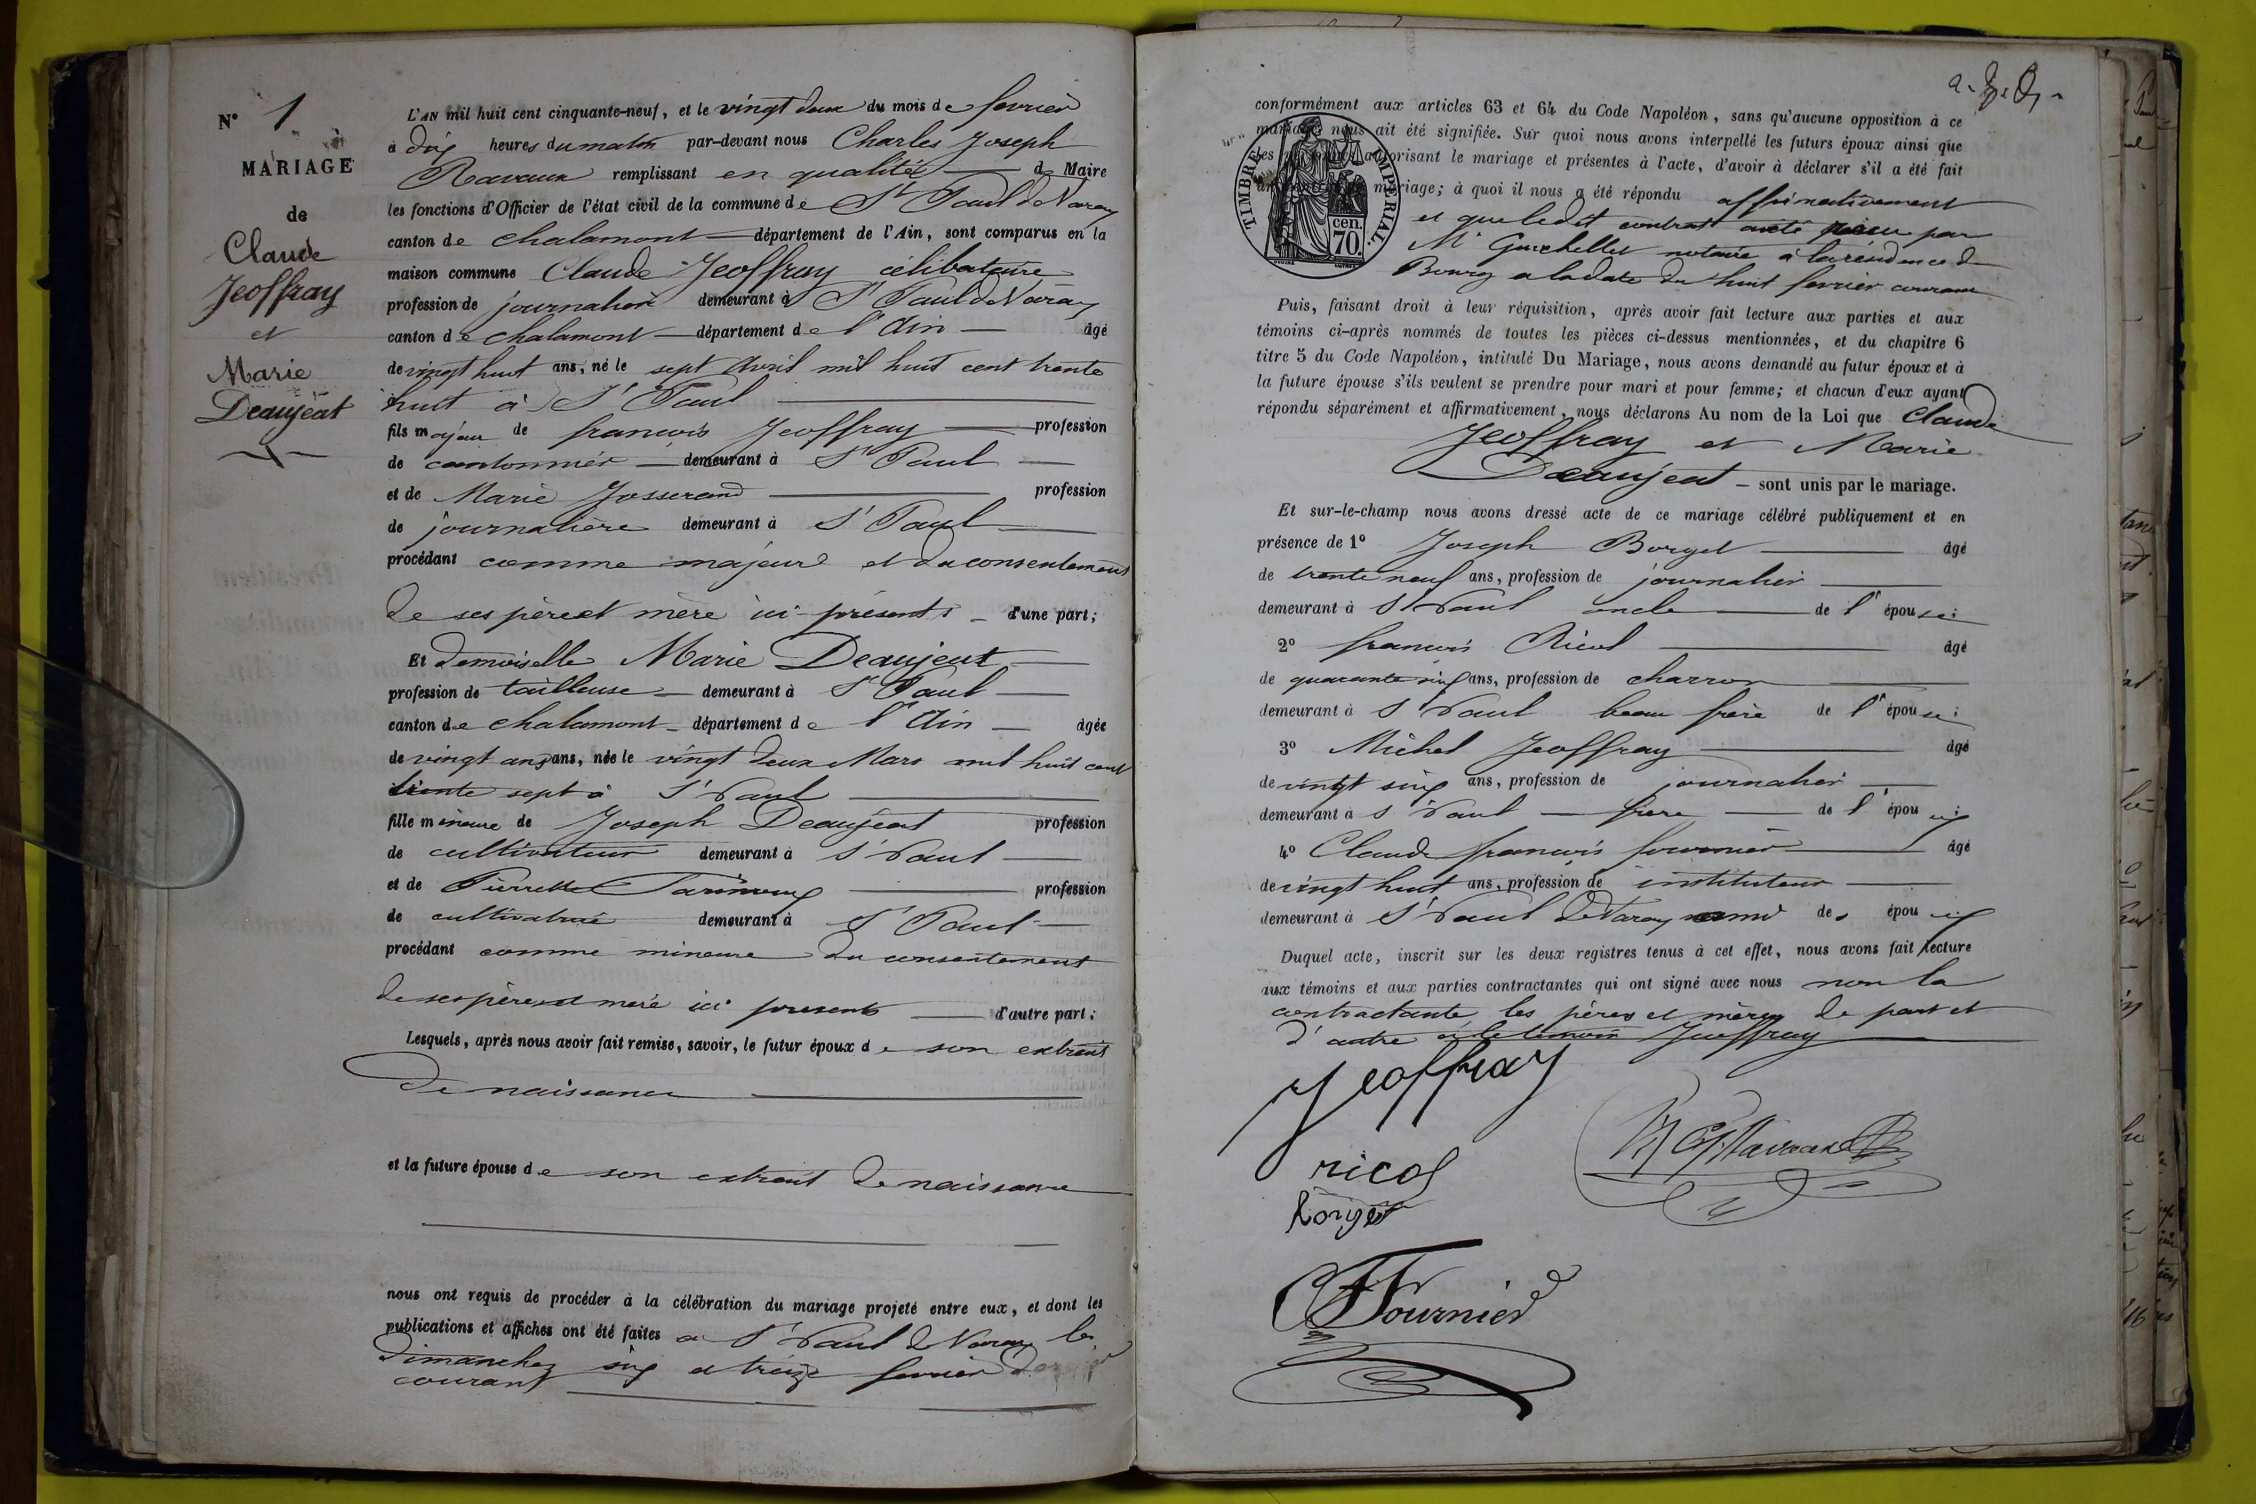 N° 1
MARIAGE
de
Claude
Jeoffray
et
Marie
Deaujeat
L'AN mil huit cent cinquante-neuf, et le vingt deux du mois de fevrier
à dix heures du matin par-devant nous Charles Joseph
Ravaux remplissant en qualité de Maire
les fonctions d'Officier de l'état civil de la commune de St Paul de Varax
canton de chalamont département de l'Ain, sont comparus en la
maison commune Claude Jeoffray célibataire
profession de journalier demeurant à St Paul de Varax
canton de chalamont département de l'Ain âgé
de vingt huit ans, né le sept Avril mil huit cent trente
huit à St Paul
fils majeur de francois Jeoffray profession
de cantonnier demeurant à St Paul
et de Marie Josserand profession
de journalière demeurant à St Paul
procédant comme majeur et du consentement
de ses père et mère ici présents d'une part;
Et demoiselle Marie Deaujeat
profession de tailleuse demeurant à St Paul
canton de chalamont département de l'Ain âgée
de vingt ans, née le vingt deux Mars mil huit cent
trente sept à St Paul
fille mineure de Joseph Deaujeat profession
de cultivateur demeurant à St Paul
et de Pierrette profession
de cultivatrice demeurant à St Paul
procédant comme mineure du consentement
de ses père et mère ici présents d'autre part;
Lesquels, après nous avoir fait remise, savoir, le futur époux de son extrait
de naissance
et la future épouse de son extrait de naissance
nous ont requis de procéder à la célébration du mariage projeté entre eux, et dont les
publications et affiches ont été faites à St Paul de Varax les
dimanches six et treize fevrier
courant
conformément aux articles 63 et 64 du Code Napoléon, sans qu'aucune opposition à ce
mariage nous ait été signifiée. Sur quoi nous avons interpellé les futurs époux ainsi que
les autorisant le mariage et présentes à l'acte, d'avoir à déclarer s'il a été fait
mariage; à quoi il nous a été répondu affirmativement
et que ledit contrat a été reçu par
Me Guichellet notaire à la résidence de
Bourg a la date du huit fevrier courant
TIMBRE IMPÉRIAL.
70 cen.
Puis, faisant droit à leur réquisition, après avoir fait lecture aux parties et aux
témoins ci-après nommés de toutes les pièces ci-dessus mentionnées, et du chapitre 6
titre 5 du Code Napoléon, intitulé Du Mariage, nous avons demandé au futur époux et à
la future épouse s'ils veulent se prendre pour mari et pour femme; et chacun d'eux ayant
répondu séparément et affirmativement, nous déclarons Au nom de la Loi que Claude
Jeoffray et Marie
Deaujeat sont unis par le mariage.
Et sur-le-champ nous avons dressé acte de ce mariage célébré publiquement et en
présence de 1° Joseph Borget âgé
de trente neuf ans, profession de journalier
demeurant à St Paul oncle de l'épouse;
2° francois Ricol âgé
de quarante ans, profession de charron
demeurant à St Paul beau frère de l'épouse;
3° Michel Jeoffray âgé
de vingt six ans, profession de journalier
demeurant à St Paul frere de l'époux;
4° Claude francois fournier âgé
de vingt huit ans, profession de instituteur
demeurant à St Paul de Varax ami des époux
Duquel acte, inscrit sur les deux registres tenus à cet effet, nous avons fait lecture
aux témoins et aux parties contractantes qui ont signé avec nous non la
contractante les pères et mères de part et
d'autre et le témoin Jeoffray
Jeoffray
ricol
Borget
CF Fournier